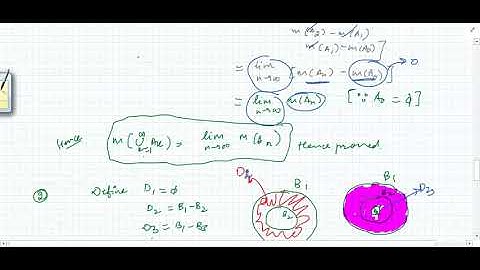 m(A₂) - m(A₁)
m(A₁) - m(A₀)]
= lim n→∞ [m(Aₙ) - m(A₀)] 0
= lim n→∞ m(Aₙ) [∵ A₀ = ϕ]
Hence m(∞∪k=1 Ak) = lim n→∞ m(Aₙ) Hence proved
② Define D₁ = ϕ
D₂ = B₁ - B₂
D₃ = B₁ - B₃
D₂ B₁ B₂
B₁ D₃